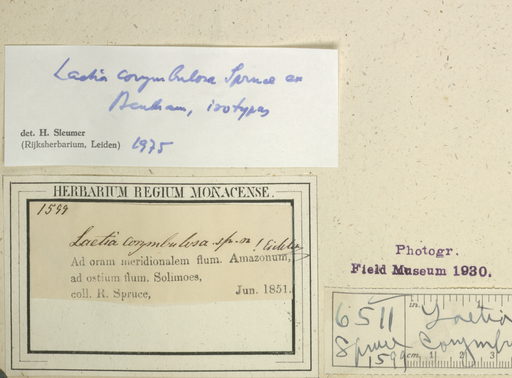 Laetia corymbulosa Spruce ex
Bentham, isotypus
det. H. Sleumer
(Rijksherbarium, Leiden) 1975
HERBARIUM REGIUM MONACENSE.
1599
Laetia corymbulosa sp. n !
Ad oram meridionalem flum. Amazonum,
ad ostium flum. Solimoes,
coll. R. Spruce, Jun. 1851.
Photogr.
Field Museum 1930.
6511 in. Laetia
Spruce Corymbu
1599 cm. 1 2 3